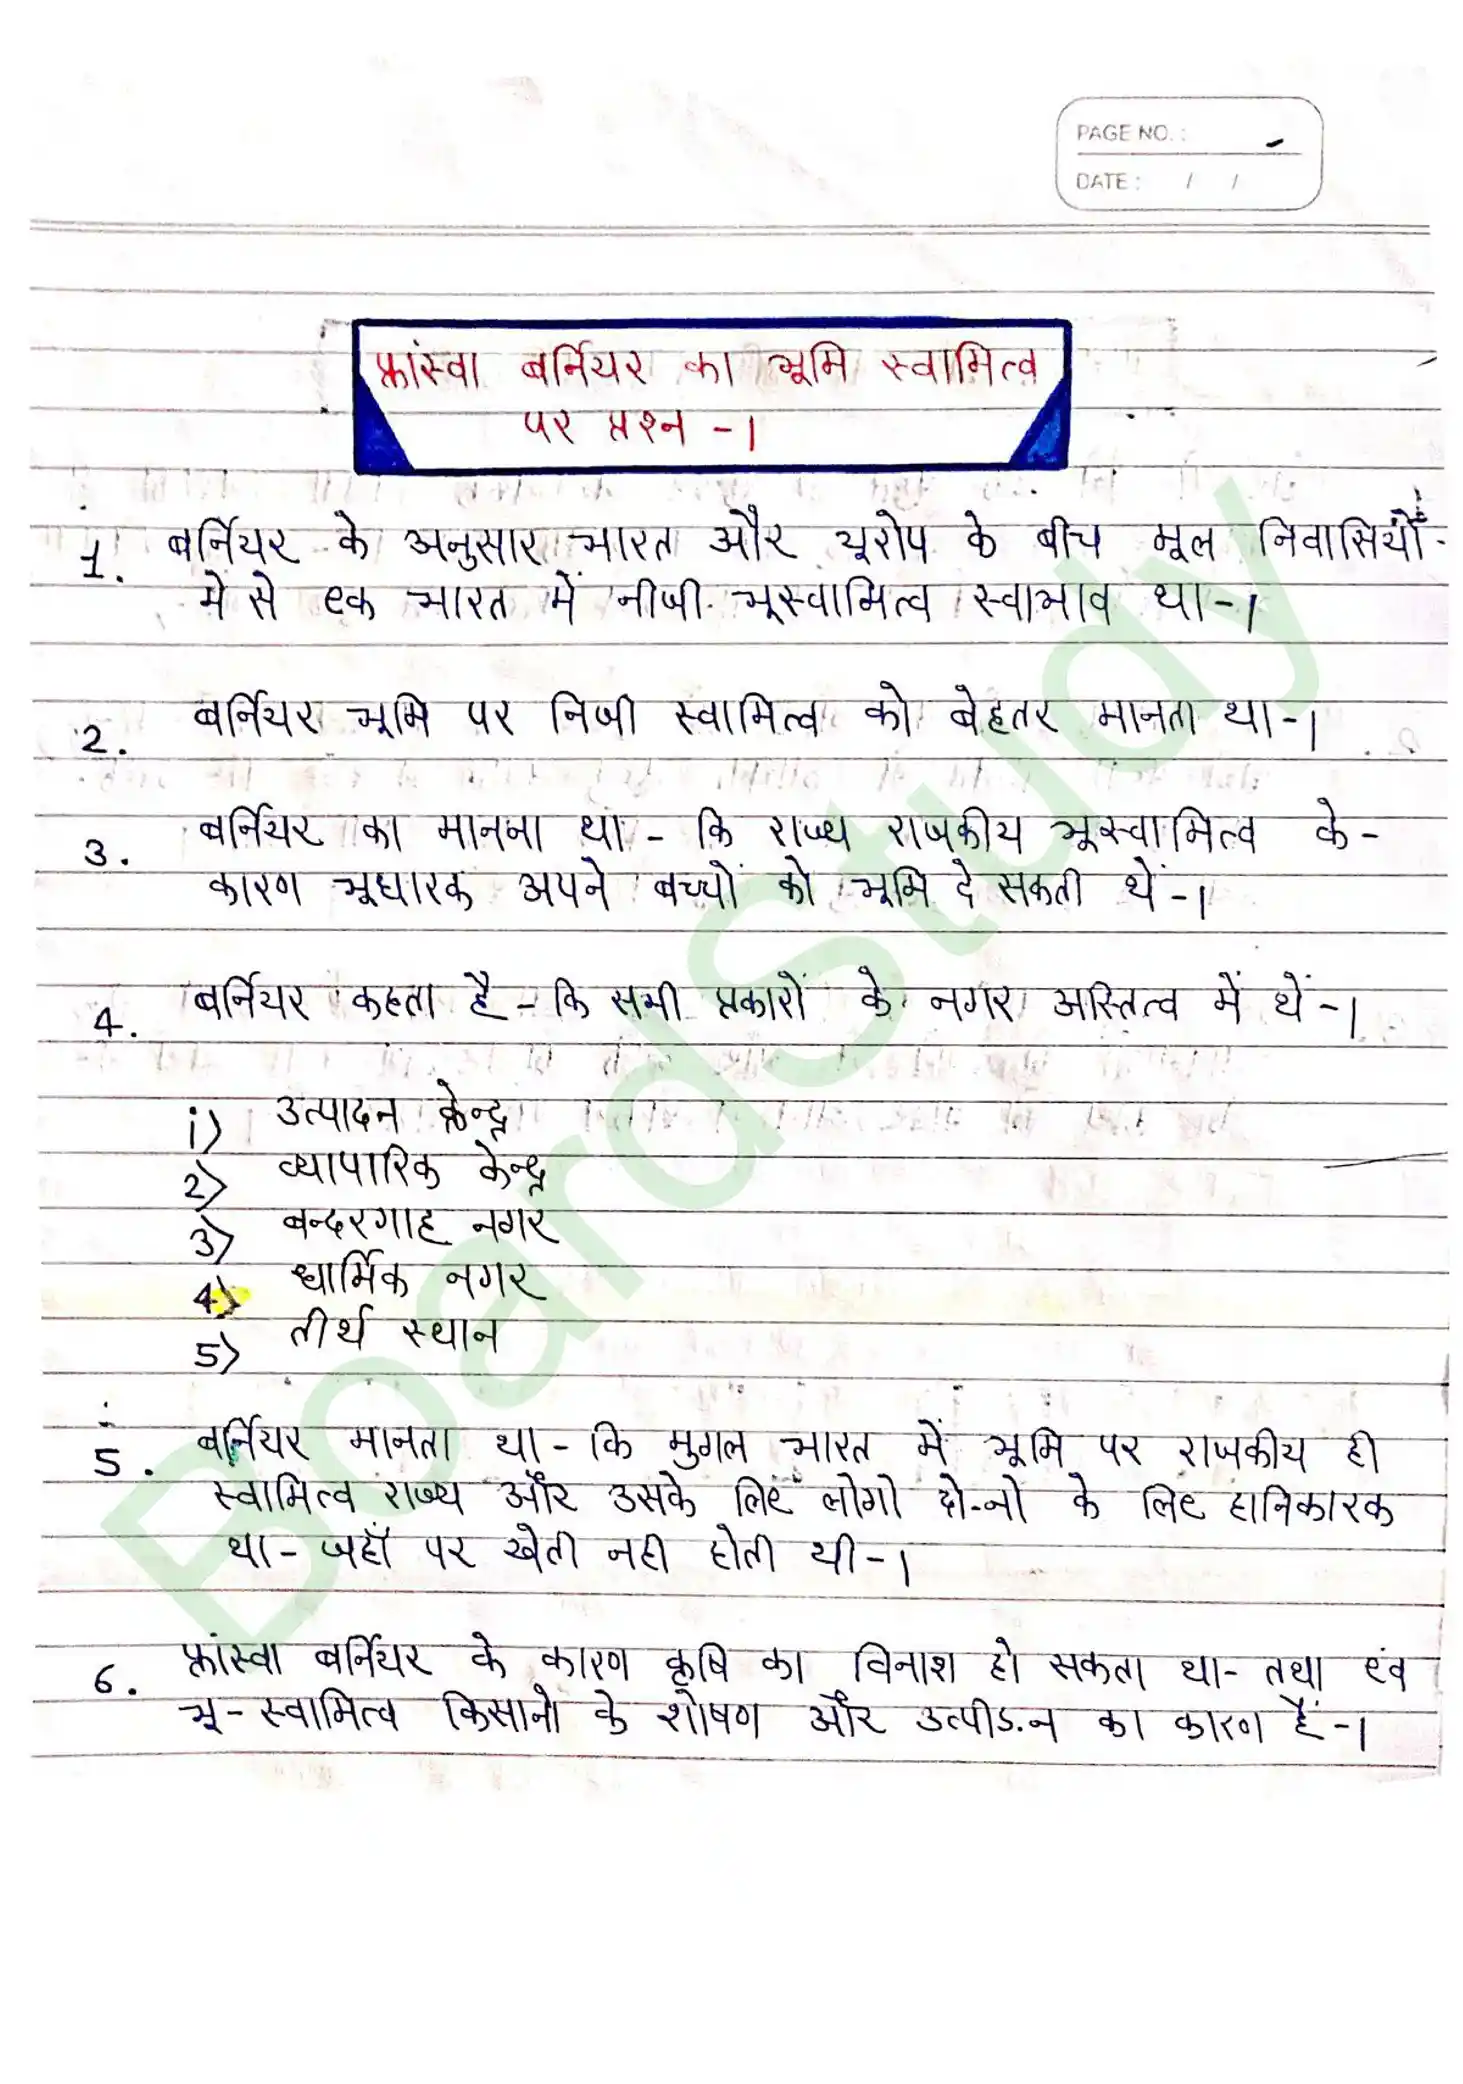 PAGE NO. :
DATE : / /
फ्रांस्वा बर्नियर का भूमि स्वामित्व
पर प्रश्न -।
1. बर्नियर के अनुसार भारत और यूरोप के बीच मूल निवासियों -
में से एक भारत में नीजी भूस्वामित्व स्वाभाव था -।
2. बर्नियर भूमि पर निजी स्वामित्व को बेहतर मानता था -।
3. बर्नियर का मानना था - कि राज्य राजकीय भूस्वामित्व के -
कारण भूधारक अपने बच्चों को भूमि दे सकती थें -।
4. बर्नियर कहता है - कि सभी प्रकारों के नगर अस्तित्व में थें -।
1) उत्पादन केन्द्र
2) व्यापारिक केन्द्र
3) बन्दरगाह नगर
4) धार्मिक नगर
5) तीर्थ स्थान
5. बर्नियर मानता था - कि मुगल भारत में भूमि पर राजकीय ही
स्वामित्व राज्य और उसके लिए लोगो दो-नो के लिए हानिकारक
था - जहाँ पर खेती नही होती थी -।
6. फ्रांस्वा बर्नियर के कारण कृषि का विनाश हो सकता था - तथा एंव
भू - स्वामित्व किसानो के शोषण और उत्पीड़न का कारण हैं -।
BoardStudy